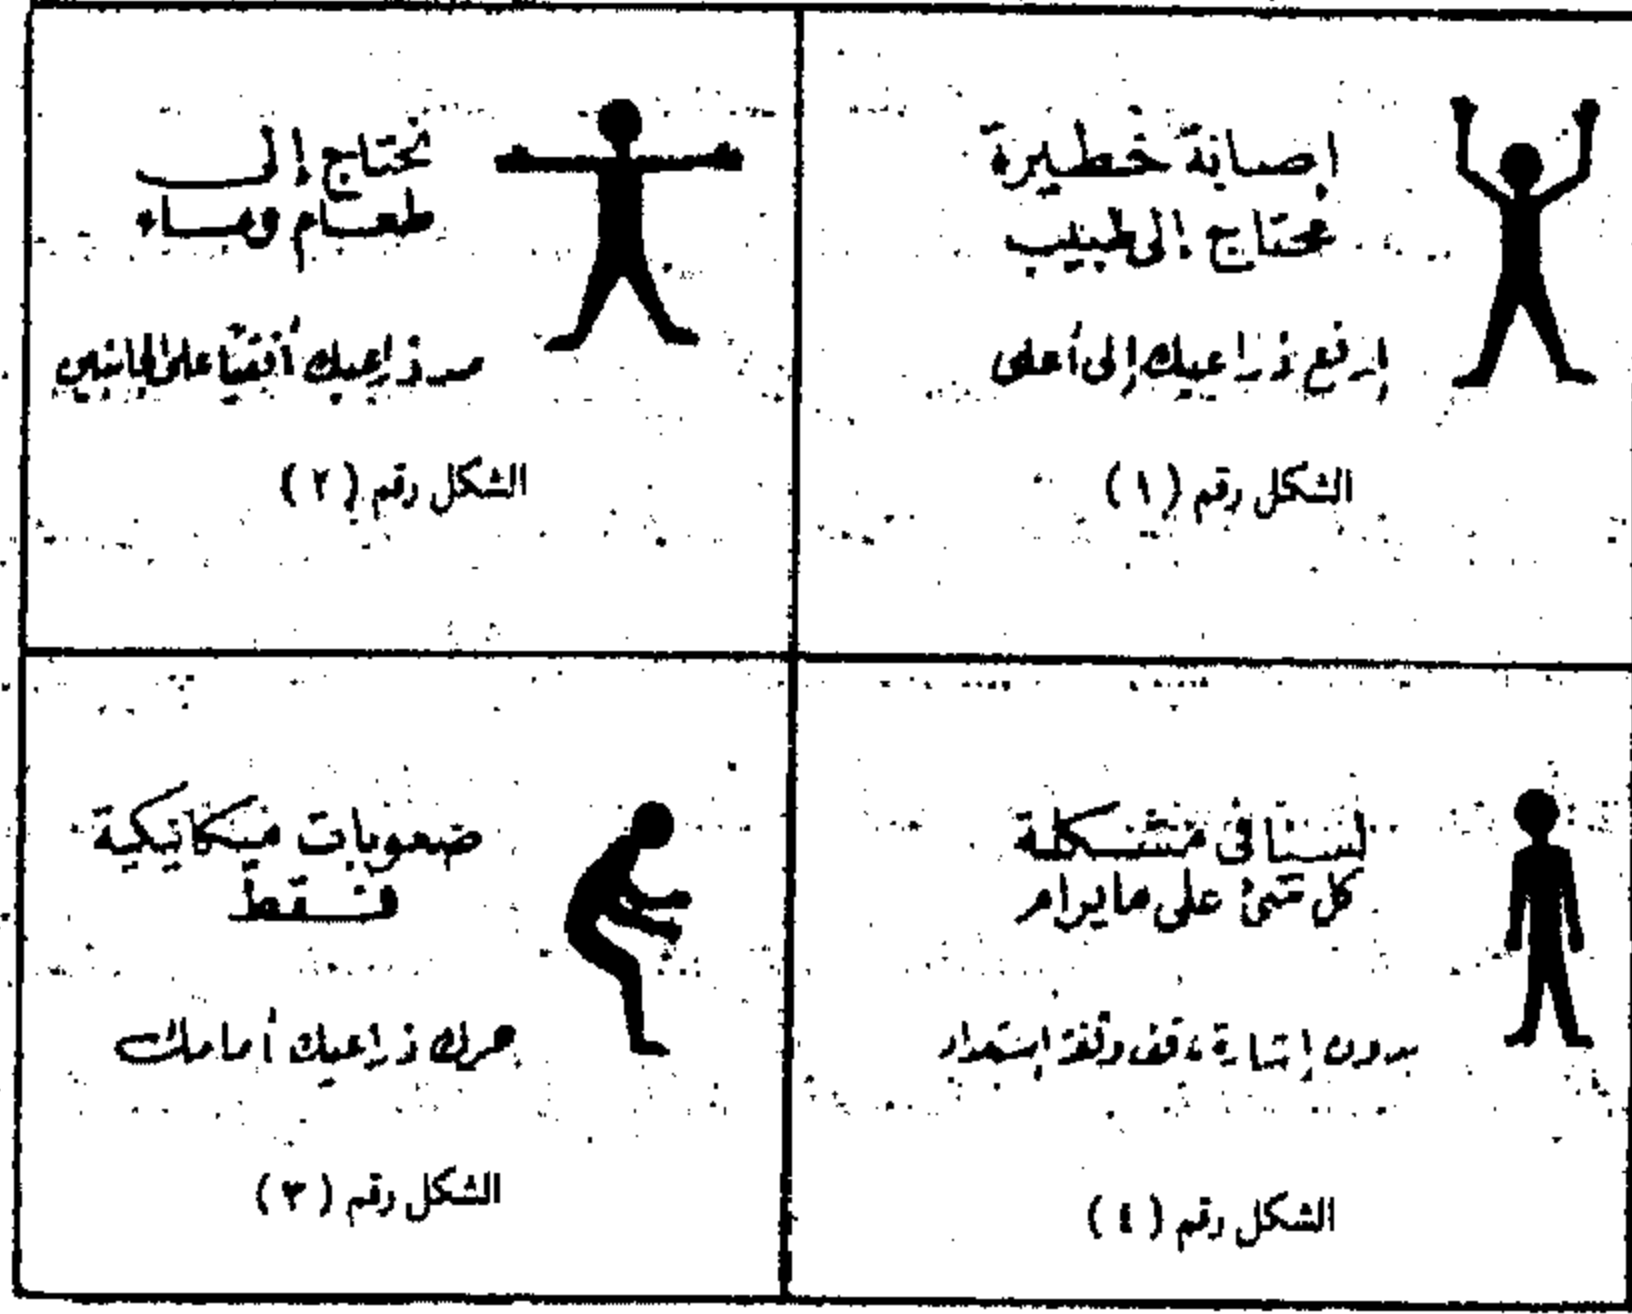 إصابة خطيرة
محتاج إلى طبيب
إرفع ذراعيك إلى أعلى
الشكل رقم (١)
نحتاج إلى
طعام وماء
مد ذراعيك أفقيًا على الجانبين
الشكل رقم (٢)
لسنا في مشكلة
كل شئ على ما يرام
بدون إشارة، قف وقفة إستعداد
الشكل رقم (٤)
صعوبات ميكانيكية
فقط
حرك ذراعيك أمامك
الشكل رقم (٣)